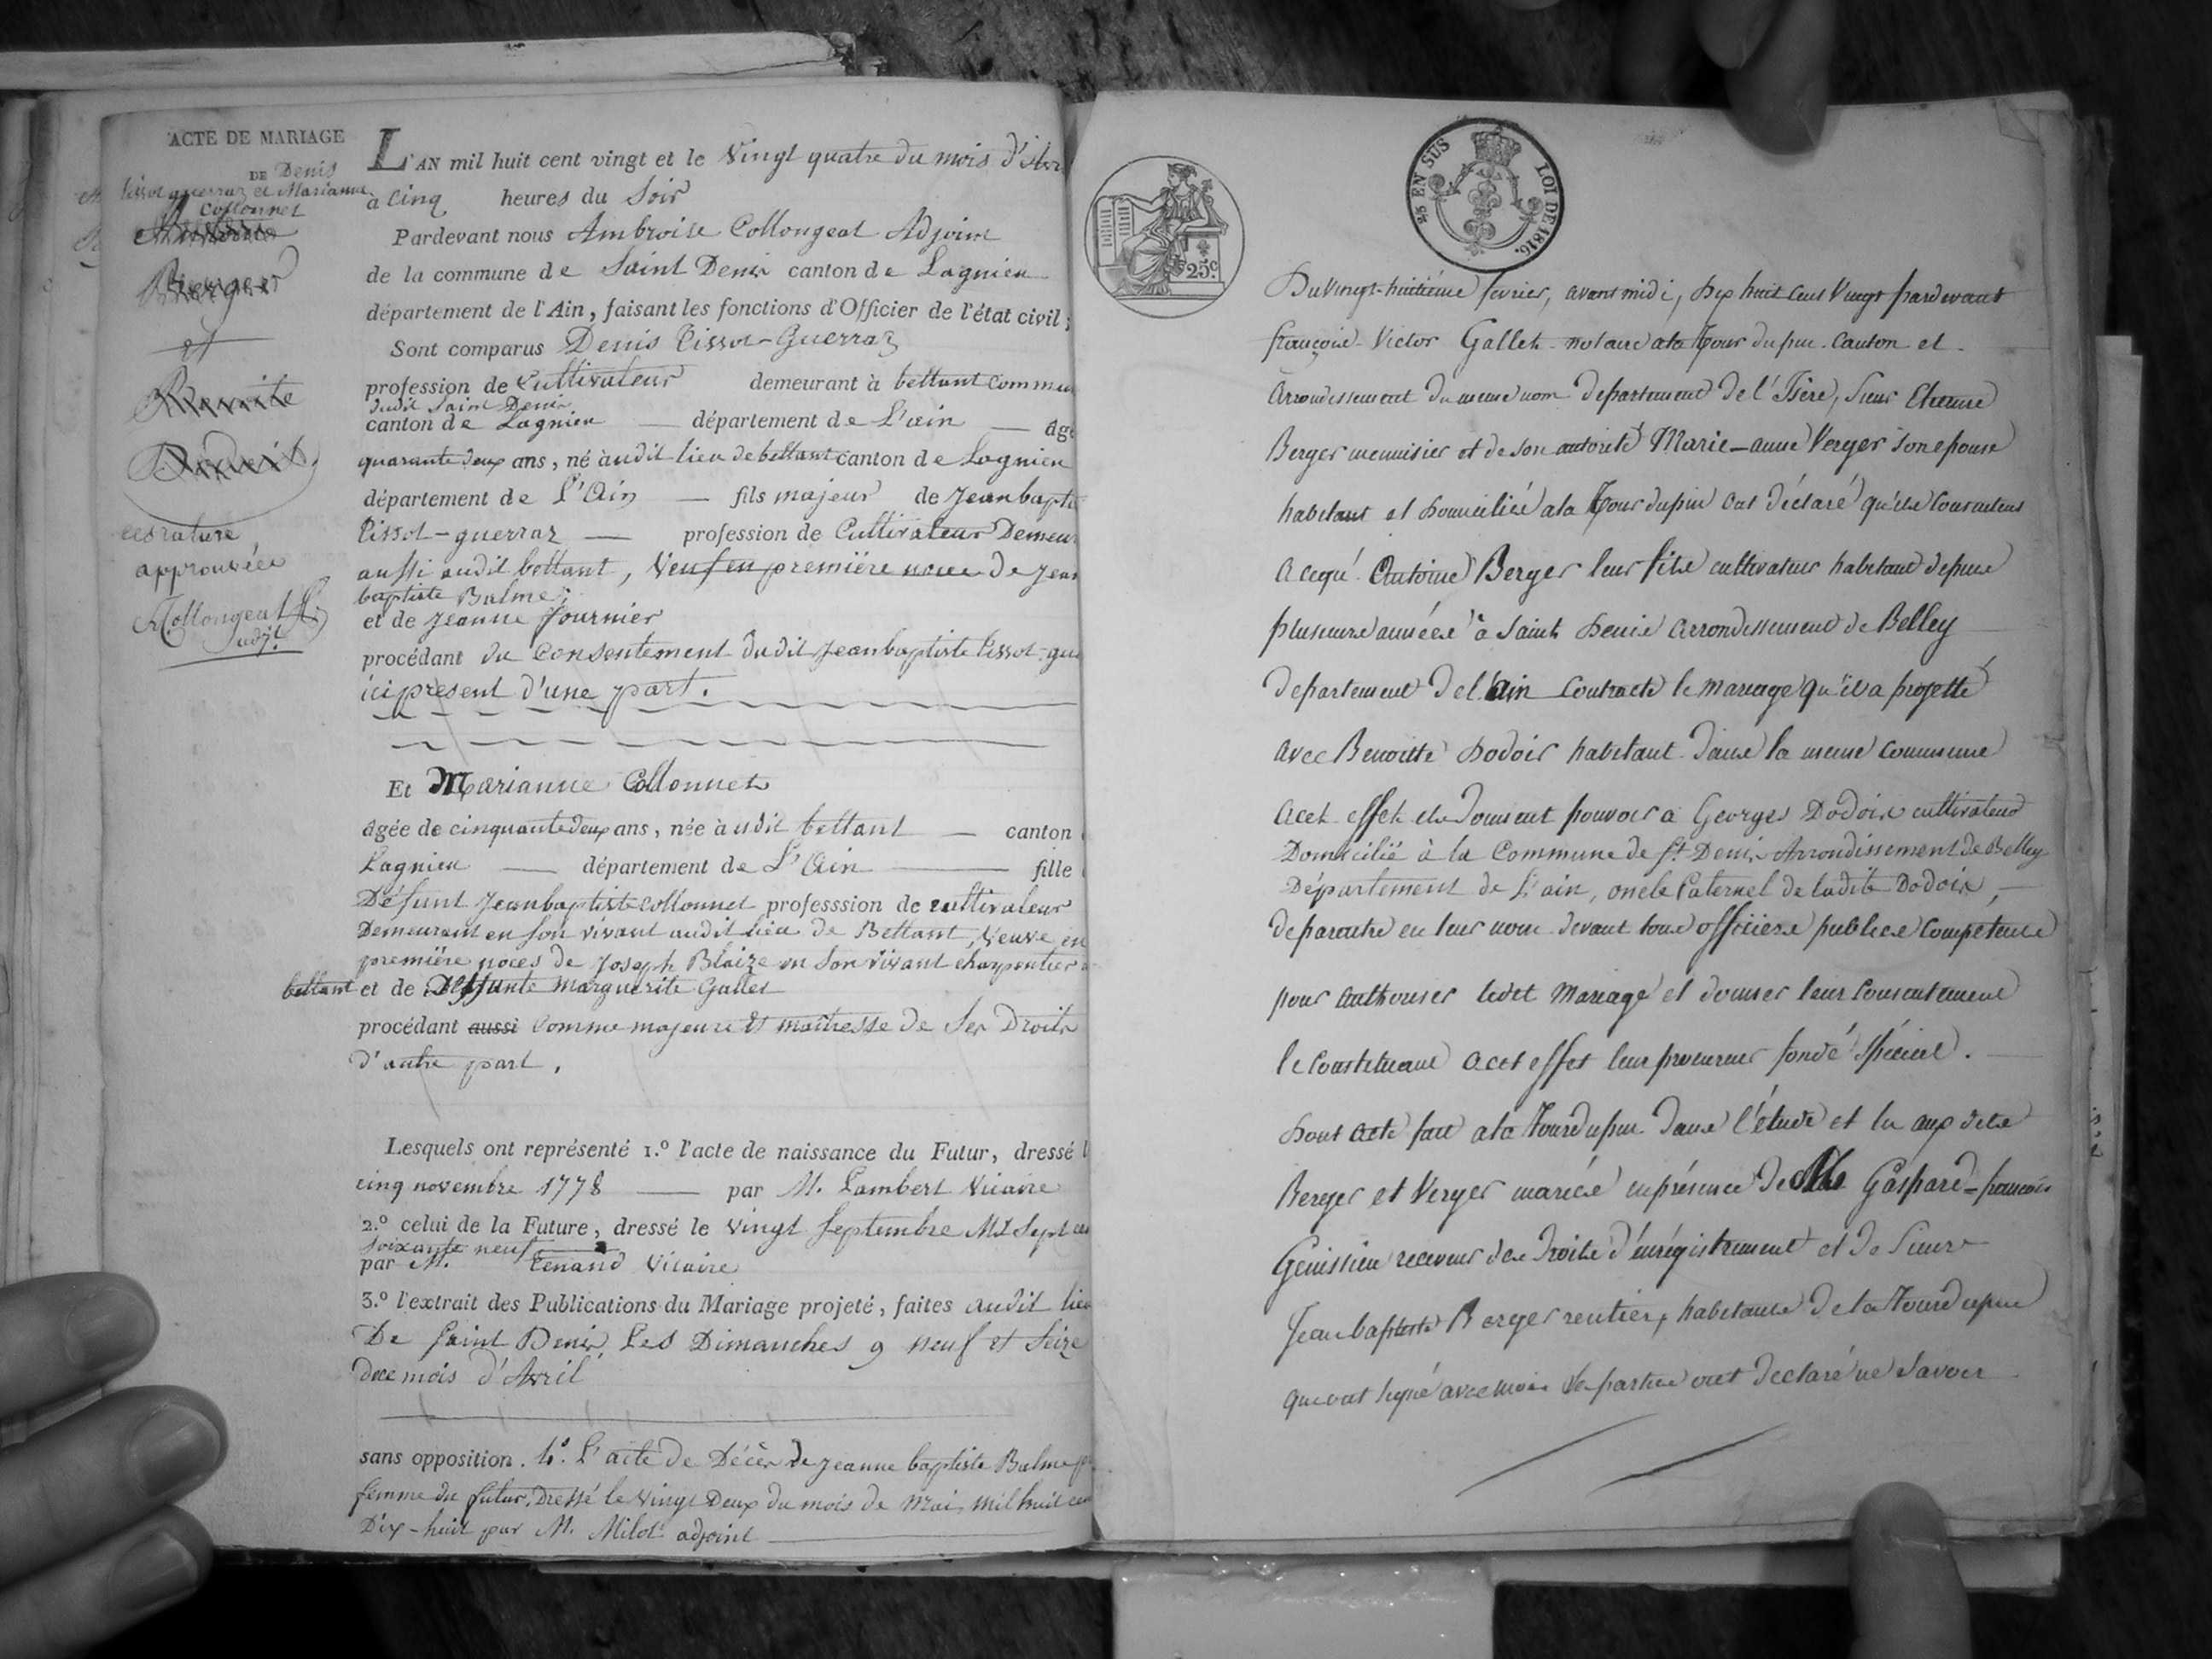 ACTE DE MARIAGE
DE Denis
Tissot guerraz et Marianne
Collonnet
Berger
et
Benoite
Dodoix
ces rature
approuvéee
Collongeat
adjt.
L'AN mil huit cent vingt et le Vingt quatre du mois d'Avr
à Cinq heures du Soir
Pardevant nous Ambroise Collongeat Adjoint
de la commune de Saint Denis canton de Lagnieu
département de l'Ain, faisant les fonctions d'Officier de l'état civil;
Sont comparus Denis Tissot-Guerraz
profession de Cultivateur demeurant à bettant Commu
dudit Saint Denis
canton de Lagnieu — département de L'ain — âgé
quarante deux ans, né à udit lieu de bettant canton de Lagnieu
département de L'Ain — fils majeur de Jean bapti
Tissot-guerraz — profession de Cultivateur Demeu
aussi audit bettant, Veuf en première noces de Jean
baptiste Balme;
et de Jeanne fournier
procédant du Consentement dudit Jean baptiste Tissot-gu
ici présent d'une part.
Et Marianne Collonnet
âgée de cinquante deux ans, née à udit bettant — canton
Lagnieu — département de L'Ain — fille
Défunt Jean baptiste Collonnet professsion de cultivateur
Demeurant en son vivant audit lieu de Bettant, Veuve en
première noces de Joseph Blaize en son vivant charpentier a
bettant et de Deffunte Marguerite Gallet
procédant aussi Comme majeure et maitresse de Ses Droits
d'autre part.
Lesquels ont représenté 1.º l'acte de naissance du Futur, dressé l
cinq novembre 1778 — par M. Lambert Vicaire
2.º celui de la Future, dressé le vingt Septembre Mil Sept cen
Soixante neuf
par M. Tenand Vicaire
3.º l'extrait des Publications du Mariage projeté, faites audit lieu
De Saint Denis, Les Dimanches 9 neuf et Seize
du ce mois d'Avril
sans opposition. 4.º L'acte de Décès de Jeanne baptiste Balme
femme du futur, Dressé le Vingt Deux du mois de Mai, mil huit cen
Dix-huit par M. Milot adjoint
25 EN SUS LOI DE 1816.
25c
Du Vingt-huitième fevrier, avant midi, Dix huit Cent Vingt pardevant
françois Victor Gallet notaire a la Tour du pin Canton et
arrondissement du meme nom departement de l'Isère, Sieur Etienne
Berger menuisier et de son autorité Marie-anne Verger son epouse
habitant et Domicilié a la Tour du pin ont déclaré qu'ils Consentent
a ce que Antoine Berger leur fils cultivateur habitant depuis
plusieurs années à Saint Denis arrondissement de Belley
departement de l'ain Contracte le mariage qu'il a projetté
avec Benoitte Dodoix habitant dans la meme commune
a cet effet ils Donnent pouvoir a Georges Dodoix cultivateur
Domicilié à la Commune de St Denis Arrondissement de Belley
Département de L'ain, oncle Paternel de ladite Dodoix,
de paroitre en leur nom devant tous officiers publics compétents
pour authoriser ledit Mariage et donner leur Consentement
le Constituant a cet effet leur procureur fondé spécial.
Dont acte fait a la Tour du pin Dans l'étude et lu aux dits
Berger et Verger mariés en présence de Gaspard-françois
Genissieu receveur des Droits d'enregistrement et de Sieur
Jean baptiste Berger rentier, habitants de la Tour du pin
qui ont signé avec moi les parties ont déclaré ne savoir